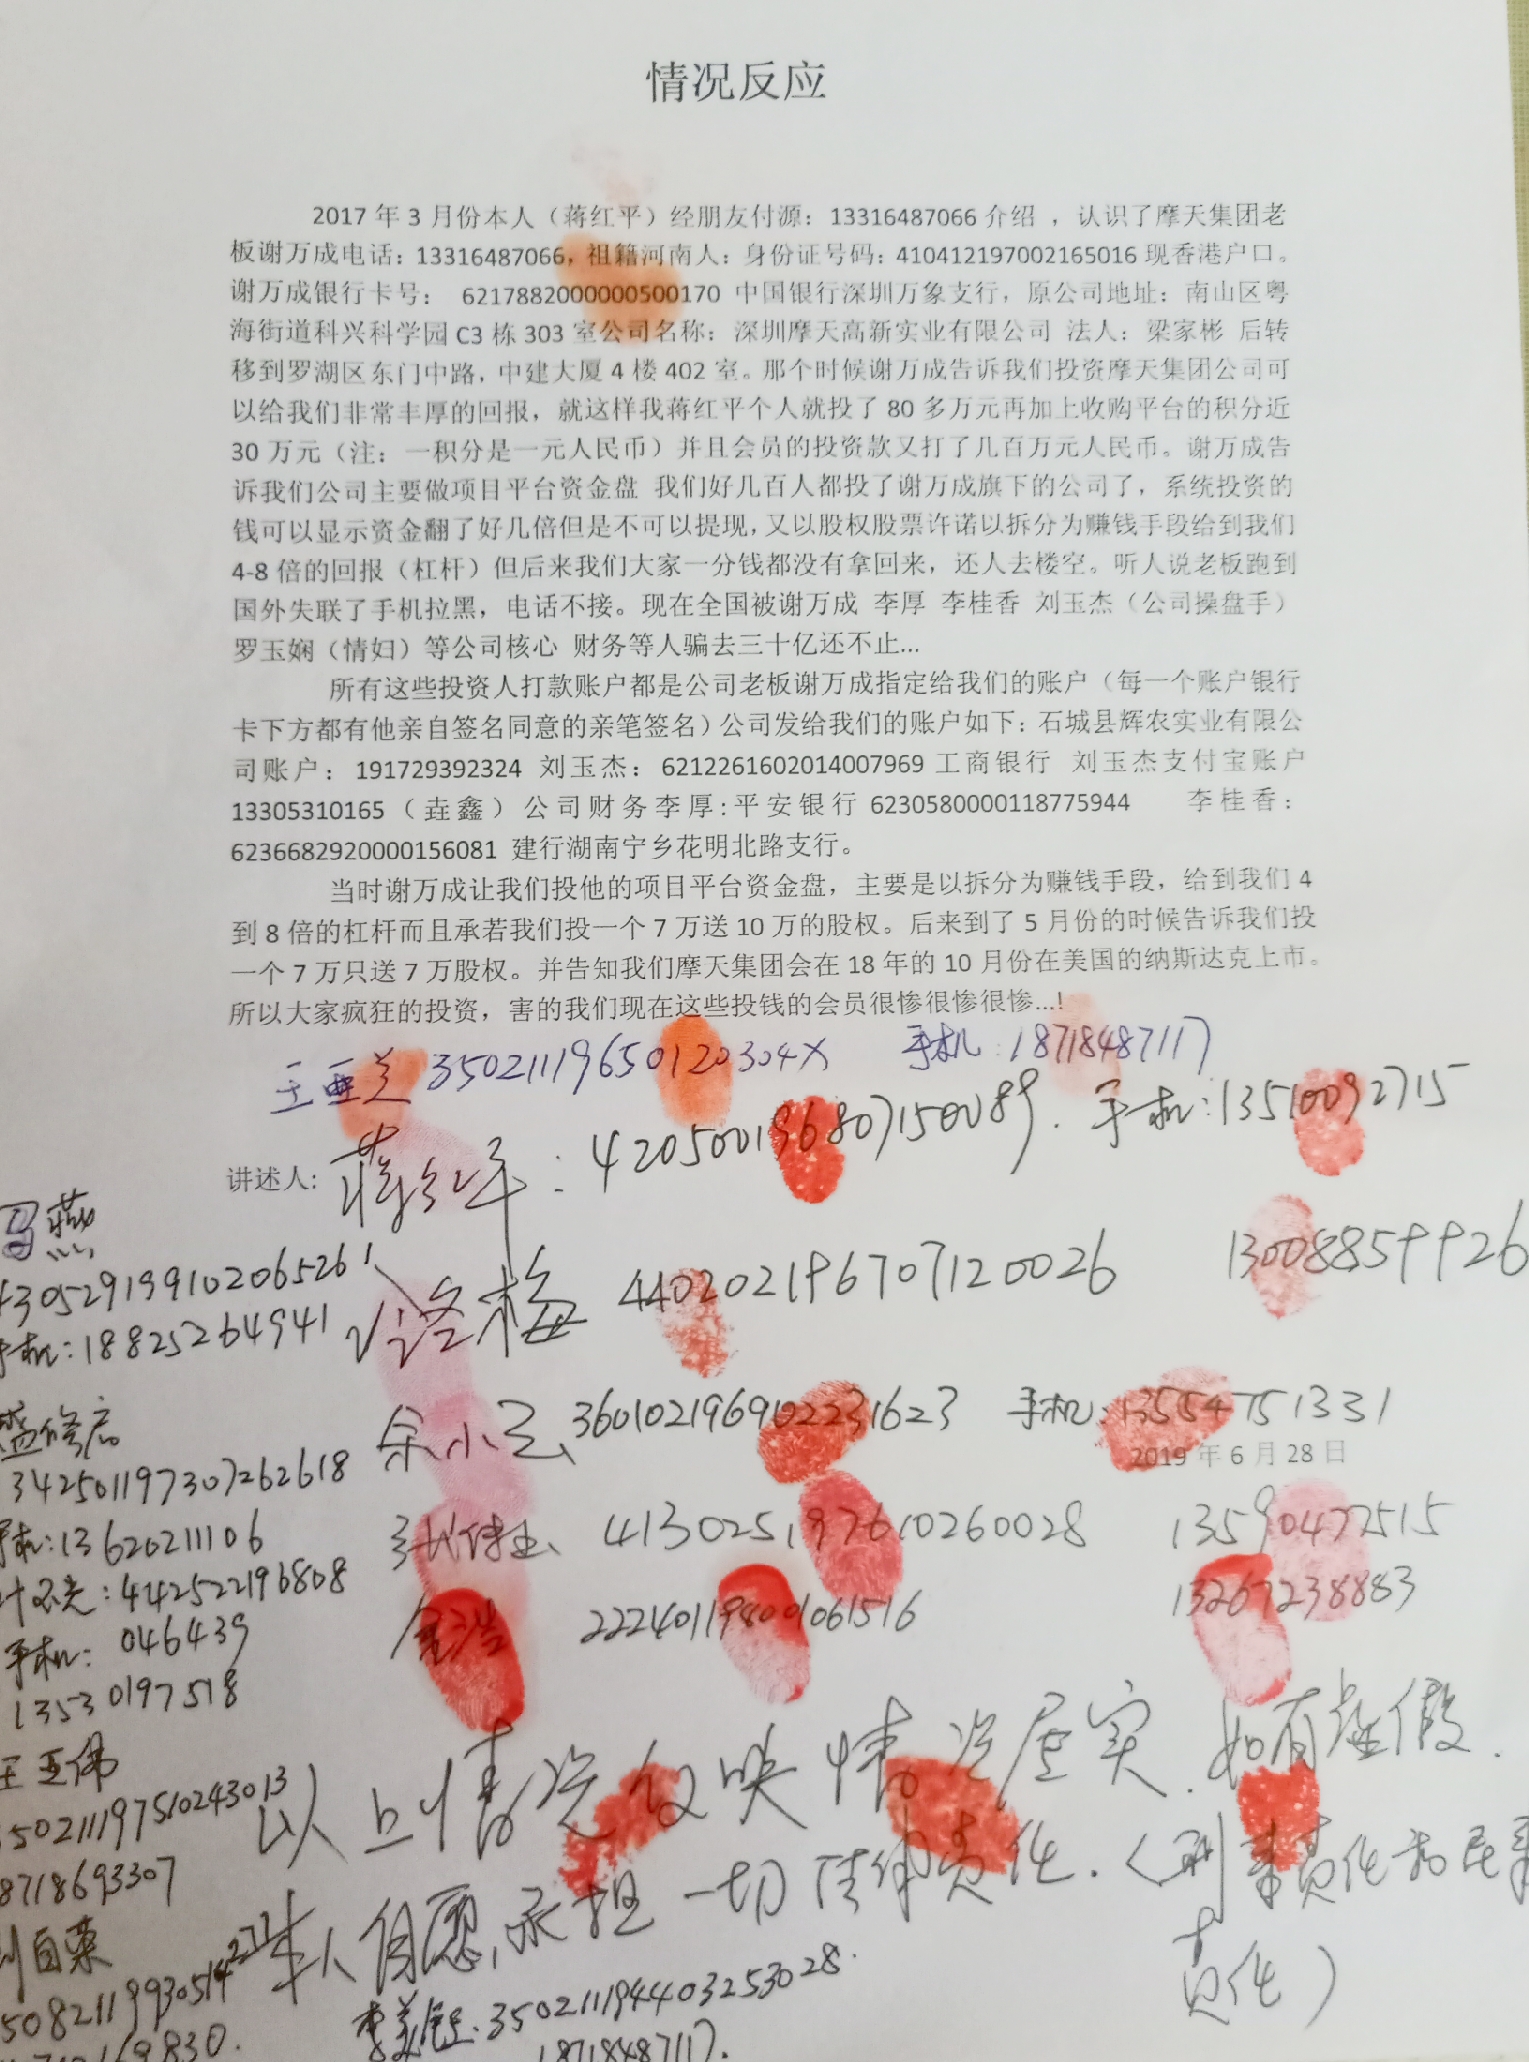 情况反应
2017 年 3 月份本人（蒋红平）经朋友付源：13316487066 介绍 ，认识了摩天集团老
板谢万成电话：13316487066，祖籍河南人：身份证号码：410412197002165016 现香港户口。
谢万成银行卡号： 6217882000000500170 中国银行深圳万象支行，原公司地址：南山区粤
海街道科兴科学园 C3 栋 303 室公司名称：深圳摩天高新实业有限公司 法人：梁家彬 后转
移到罗湖区东门中路，中建大厦 4 楼 402 室。那个时候谢万成告诉我们投资摩天集团公司可
以给我们非常丰厚的回报，就这样我蒋红平个人就投了 80 多万元再加上收购平台的积分近
30 万元（注：一积分是一元人民币）并且会员的投资款又打了几百万元人民币。谢万成告
诉我们公司主要做项目平台资金盘 我们好几百人都投了谢万成旗下的公司了，系统投资的
钱可以显示资金翻了好几倍但是不可以提现，又以股权股票许诺以拆分为赚钱手段给到我们
4-8 倍的回报（杠杆）但后来我们大家一分钱都没有拿回来，还人去楼空。听人说老板跑到
国外失联了手机拉黑，电话不接。现在全国被谢万成 李厚 李桂香 刘玉杰（公司操盘手）
罗玉娴（情妇）等公司核心 财务等人骗去三十亿还不止...
所有这些投资人打款账户都是公司老板谢万成指定给我们的账户（每一个账户银行
卡下方都有他亲自签名同意的亲笔签名）公司发给我们的账户如下：石城县辉农实业有限公
司账户：191729392324 刘玉杰：6212261602014007969 工商银行 刘玉杰支付宝账户
13305310165（垚鑫）公司财务李厚:平安银行 6230580000118775944 李桂香：
6236682920000156081 建行湖南宁乡花明北路支行。
当时谢万成让我们投他的项目平台资金盘，主要是以拆分为赚钱手段，给到我们 4
到 8 倍的杠杆而且承若我们投一个 7 万送 10 万的股权。后来到了 5 月份的时候告诉我们投
一个 7 万只送 7 万股权。并告知我们摩天集团会在 18 年的 10 月份在美国的纳斯达克上市。
所以大家疯狂的投资，害的我们现在这些投钱的会员很惨很惨很惨...!
王亜兰 35021119650120304X 手机：18718487117
讲述人: 蒋红平：420500196807150089. 手机:13510092715
燕
430529199102065261
手机:18825264941
洛梅 440202196707120026 13008859926
余小玉 360102196910223 1623 手机:13554751331
2019 年 6 月 28 日
盛修启
342501197307262618
手机:13620211106
413025197610260028 13590472515
:442522196808
046439
手机:
13530197518
222401194001061516 13267238883
王亚伟
350211197510243013
18718693307
以上情况反映情况属实.如有虚假.
本人自愿,承担一切法律责任.(刑事责任和民事
责任)
自荣
:350211194403253028.
18718487117.